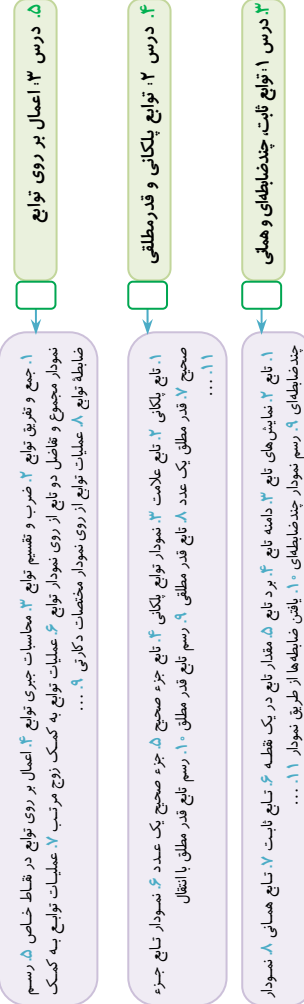 ۳. درس ۱: توابع ثابت، چندضابطه‌ای و همانی
۱. تابع ۲. نمایش‌های تابع ۳. دامنه تابع ۴. برد تابع ۵. مقدار تابع در یک نقطه ۶. تابع ثابت ۷. تابع همانی ۸. نمودار
چندضابطه‌ای ۹. رسم نمودار چندضابطه‌ای ۱۰. یافتن ضابطه‌ها از طریق نمودار ۱۱. ...
۴. درس ۲: توابع پلکانی و قدرمطلقی
۱. تابع پلکانی ۲. تابع علامت ۳. نمودار توابع پلکانی ۴. تابع جزء صحیح ۵. جزء صحیح یک عدد ۶. نمودار تابع جزء
صحیح ۷. قدر مطلق یک عدد ۸. تابع قدر مطلقی ۹. رسم تابع قدر مطلق ۱۰. رسم تابع قدر مطلق با انتقال
۱۱. ...
۵. درس ۳: اعمال بر روی توابع
۱. جمع و تفریق توابع ۲. ضرب و تقسیم توابع ۳. محاسبات جبری توابع ۴. اعمال بر روی توابع در نقاط خاص ۵. رسم
نمودار مجموع و تفاضل دو تابع از روی نمودار توابع ۶. عملیات توابع به کمک زوج مرتب ۷. عملیات توابع به کمک
ضابطهٔ توابع ۸. عملیات توابع از روی نمودار مختصات دکارتی ۹. ...